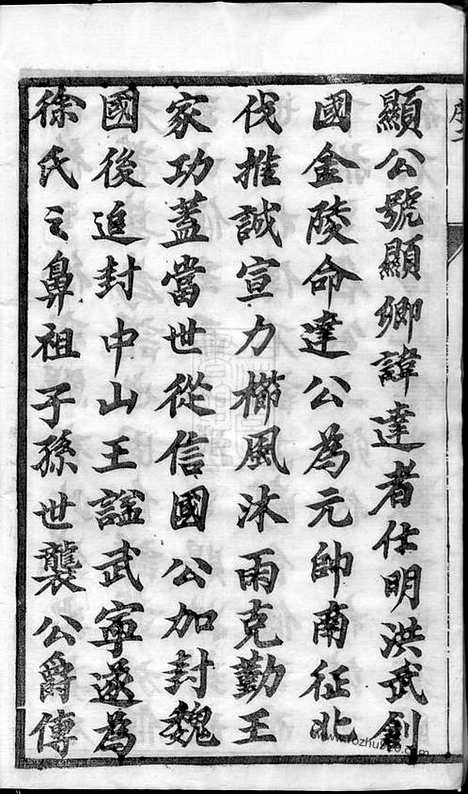 顯公號顯卿諱達者仕明洪武創
國金陵命達公為元帥南征北
伐推誠宣力櫛風沐雨克勤王
家功蓋當世從信國公加封魏
國後追封中山王諡武寜遂為
徐氏之鼻祖子孫世襲公爵傳